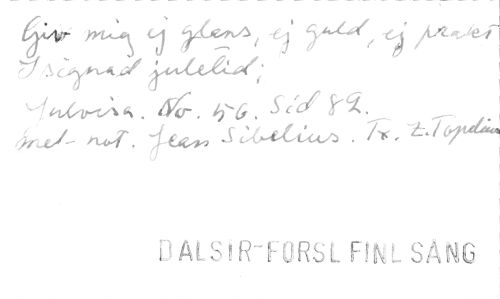 Giv mig ej glans, ej guld, ej prakt
I signad juletid;
Julvisa. No. 56. Sid 82.
met-not. Jean Sibelius. Tx. Z. Topelius
DALSIR-FORSL FINL SÅNG